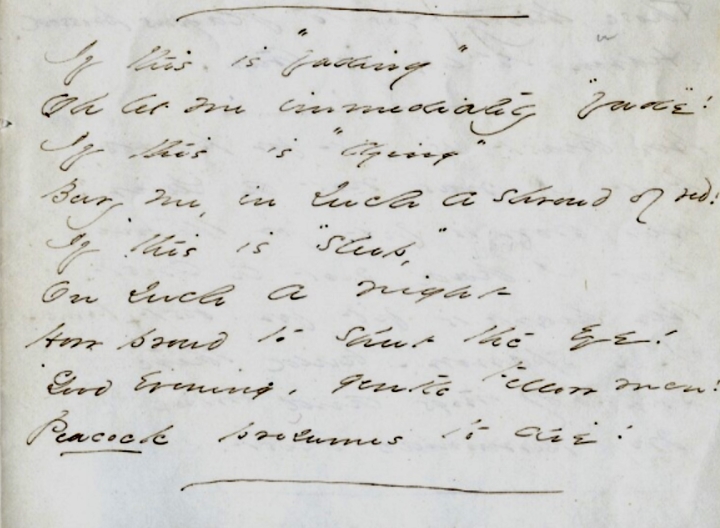 If this is "fading"
Oh let me immediately "fade"!
If this is "dying"
Bury me, in such a shroud of red!
If this is "sleep,"
On such a night
How proud to shut the Eye!
Good Evening, gentle Fellow men!
Peacock presumes to die!